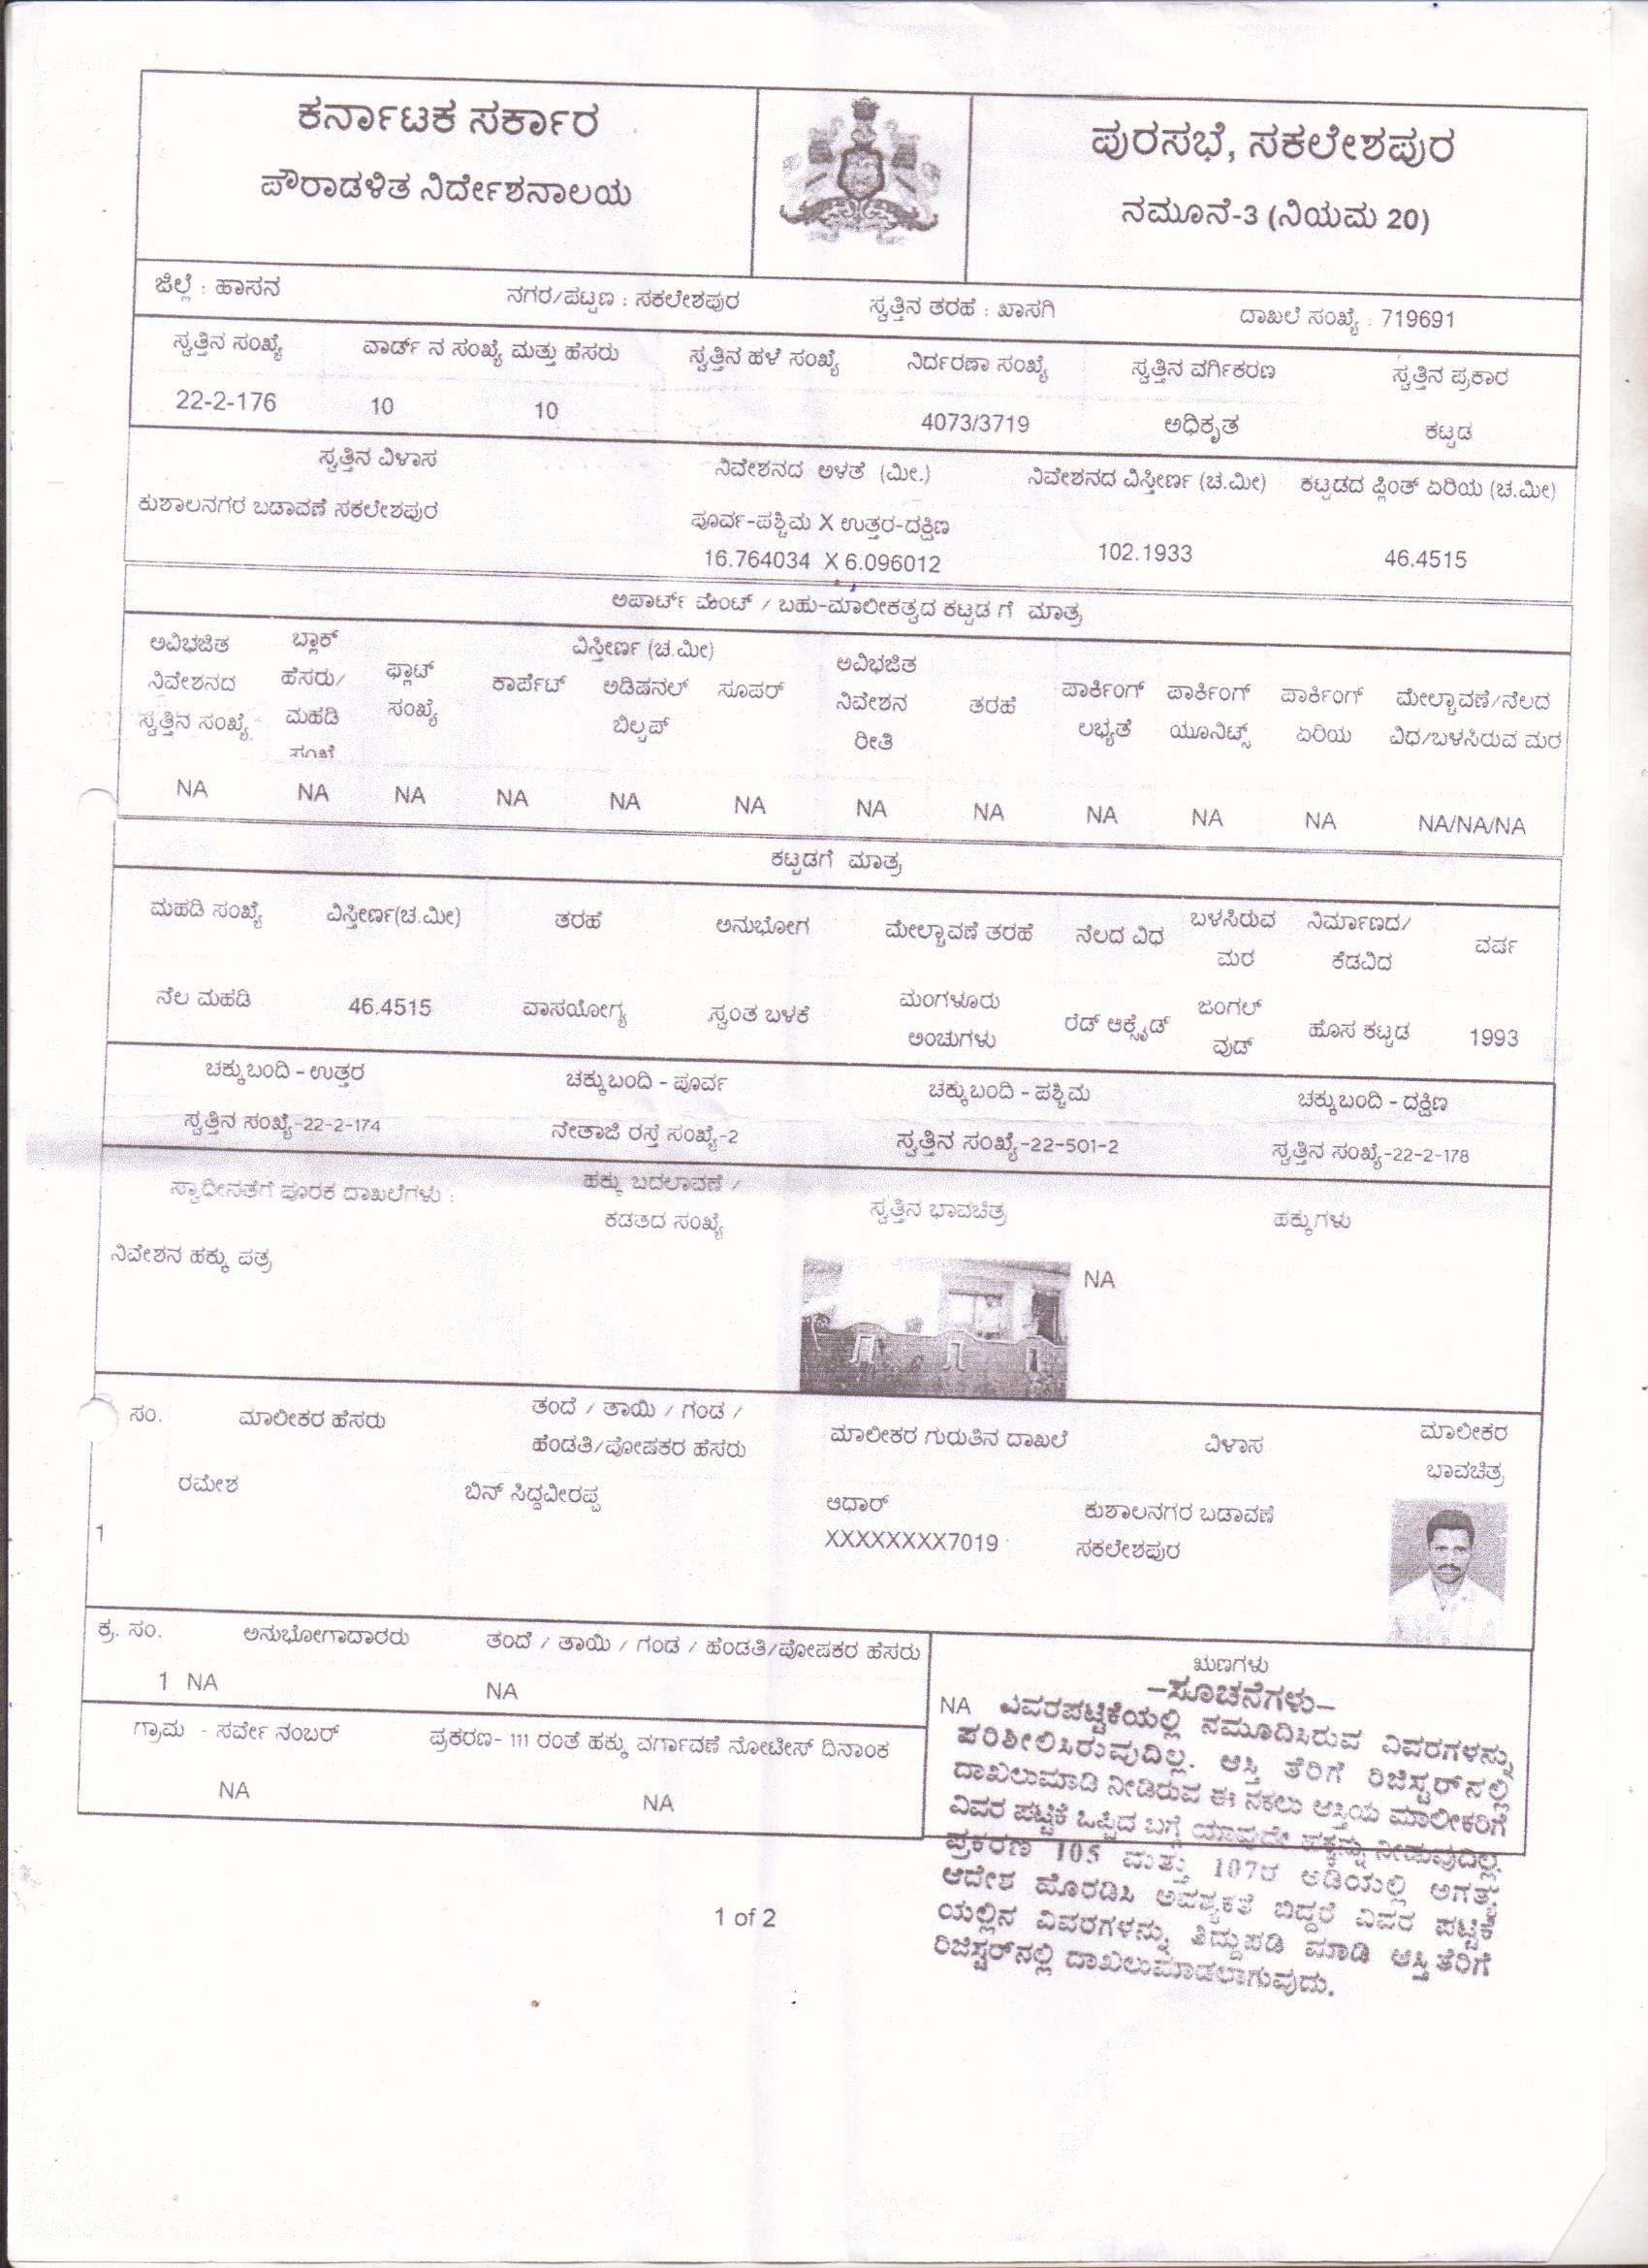 ಕರ್ನಾಟಕ ಸರ್ಕಾರ
ಪೌರಾಡಳಿತ ನಿರ್ದೇಶನಾಲಯ
ಪುರಸಭೆ, ಸಕಲೇಶಪುರ
ನಮೂನೆ-3 (ನಿಯಮ 20)
ಜಿಲ್ಲೆ : ಹಾಸನ ನಗರ/ಪಟ್ಟಣ : ಸಕಲೇಶಪುರ ಸ್ವತ್ತಿನ ತರಹೆ : ಖಾಸಗಿ ದಾಖಲೆ ಸಂಖ್ಯೆ : 719691
ಸ್ವತ್ತಿನ ಸಂಖ್ಯೆ ವಾರ್ಡ್ ನ ಸಂಖ್ಯೆ ಮತ್ತು ಹೆಸರು ಸ್ವತ್ತಿನ ಹಳೆ ಸಂಖ್ಯೆ ನಿರ್ದರಣಾ ಸಂಖ್ಯೆ ಸ್ವತ್ತಿನ ವರ್ಗಿಕರಣ ಸ್ವತ್ತಿನ ಪ್ರಕಾರ
22-2-176 10 10 4073/3719 ಅಧಿಕೃತ ಕಟ್ಟಡ
ಸ್ವತ್ತಿನ ವಿಳಾಸ ನಿವೇಶನದ ಅಳತೆ (ಮೀ.) ನಿವೇಶನದ ವಿಸ್ತೀರ್ಣ (ಚ.ಮೀ) ಕಟ್ಟಡದ ಪ್ಲಿಂತ್ ಏರಿಯ (ಚ.ಮೀ)
ಕುಶಾಲನಗರ ಬಡಾವಣೆ ಸಕಲೇಶಪುರ ಪೂರ್ವ-ಪಶ್ಚಿಮ X ಉತ್ತರ-ದಕ್ಷಿಣ
16.764034 X 6.096012 102.1933 46.4515
ಅಪಾರ್ಟ್ ಮೆಂಟ್ / ಬಹು-ಮಾಲೀಕತ್ವದ ಕಟ್ಟಡ ಗೆ ಮಾತ್ರ
ಅವಿಭಜಿತ ಬ್ಲಾಕ್ ವಿಸ್ತೀರ್ಣ (ಚ.ಮೀ) ಅವಿಭಜಿತ
ನಿವೇಶನದ ಹೆಸರು/ ಫ್ಲಾಟ್ ಕಾರ್ಪೆಟ್ ಅಡಿಷನಲ್ ಸೂಪರ್ ನಿವೇಶನ ತರಹೆ ಪಾರ್ಕಿಂಗ್ ಪಾರ್ಕಿಂಗ್ ಪಾರ್ಕಿಂಗ್ ಮೇಲ್ಚಾವಣೆ/ನೆಲದ
ಸ್ವತ್ತಿನ ಸಂಖ್ಯೆ ಮಹಡಿ ಸಂಖ್ಯೆ ಬಿಲ್ಟಪ್ ರೀತಿ ಲಭ್ಯತೆ ಯೂನಿಟ್ಸ್ ಏರಿಯ ವಿಧ/ಬಳಸಿರುವ ಮರ
ಸಂಖ್ಯೆ
NA NA NA NA NA NA NA NA NA NA NA NA/NA/NA
ಕಟ್ಟಡಗೆ ಮಾತ್ರ
ಮಹಡಿ ಸಂಖ್ಯೆ ವಿಸ್ತೀರ್ಣ(ಚ.ಮೀ) ತರಹೆ ಅನುಭೋಗ ಮೇಲ್ಚಾವಣೆ ತರಹೆ ನೆಲದ ವಿಧ ಬಳಸಿರುವ ನಿರ್ಮಾಣದ/ ವರ್ಷ
ಮರ ಕೆಡವಿದ
ನೆಲ ಮಹಡಿ 46.4515 ವಾಸಯೋಗ್ಯ ಸ್ವಂತ ಬಳಕೆ ಮಂಗಳೂರು ರೆಡ್ ಆಕ್ಸೈಡ್ ಜಂಗಲ್ ಹೊಸ ಕಟ್ಟಡ 1993
ಅಂಚುಗಳು ವುಡ್
ಚಕ್ಕುಬಂದಿ - ಉತ್ತರ ಚಕ್ಕುಬಂದಿ - ಪೂರ್ವ ಚಕ್ಕುಬಂದಿ - ಪಶ್ಚಿಮ ಚಕ್ಕುಬಂದಿ - ದಕ್ಷಿಣ
ಸ್ವತ್ತಿನ ಸಂಖ್ಯೆ-22-2-174 ನೇತಾಜಿ ರಸ್ತೆ ಸಂಖ್ಯೆ-2 ಸ್ವತ್ತಿನ ಸಂಖ್ಯೆ-22-501-2 ಸ್ವತ್ತಿನ ಸಂಖ್ಯೆ-22-2-178
ಸ್ವಾಧೀನತೆಗೆ ಪೂರಕ ದಾಖಲೆಗಳು : ಹಕ್ಕು ಬದಲಾವಣೆ / ಸ್ವತ್ತಿನ ಭಾವಚಿತ್ರ ಹಕ್ಕುಗಳು
ಕಡತದ ಸಂಖ್ಯೆ
ನಿವೇಶನ ಹಕ್ಕು ಪತ್ರ NA
ಸಂ. ಮಾಲೀಕರ ಹೆಸರು ತಂದೆ / ತಾಯಿ / ಗಂಡ / ಮಾಲೀಕರ ಗುರುತಿನ ದಾಖಲೆ ವಿಳಾಸ ಮಾಲೀಕರ
ಹೆಂಡತಿ/ಪೋಷಕರ ಹೆಸರು ಭಾವಚಿತ್ರ
ರಮೇಶ ಬಿನ್ ಸಿದ್ದವೀರಪ್ಪ ಆಧಾರ್ ಕುಶಾಲನಗರ ಬಡಾವಣೆ
1 XXXXXXXX7019 ಸಕಲೇಶಪುರ
ಕ್ರ. ಸಂ. ಅನುಭೋಗಾದಾರರು ತಂದೆ / ತಾಯಿ / ಗಂಡ / ಹೆಂಡತಿ/ಪೋಷಕರ ಹೆಸರು
1 NA NA
ಗ್ರಾಮ - ಸರ್ವೇ ನಂಬರ್ ಪ್ರಕರಣ- 111 ರಂತೆ ಹಕ್ಕು ವರ್ಗಾವಣೆ ನೋಟೀಸ್ ದಿನಾಂಕ
NA NA
ಋಣಗಳು
NA
-ಸೂಚನೆಗಳು-
ವಿವರಪಟ್ಟಿಕೆಯಲ್ಲಿ ನಮೂದಿಸಿರುವ ವಿವರಗಳನ್ನು
ಪರಿಶೀಲಿಸಿರುವುದಿಲ್ಲ. ಆಸ್ತಿ ತೆರಿಗೆ ರಿಜಿಸ್ಟರ್‌ನಲ್ಲಿ
ದಾಖಲುಮಾಡಿ ನೀಡಿರುವ ಈ ನಕಲು ಆಸ್ತಿಯ ಮಾಲೀಕರಿಗೆ
ವಿವರ ಪಟ್ಟಿಕೆ ಒಪ್ಪಿದ ಬಗ್ಗೆ ಯಾವುದೇ ಹಕ್ಕನ್ನು ನೀಡುವುದಿಲ್ಲ.
ಪ್ರಕರಣ 105 ಮತ್ತು 107ರ ಅಡಿಯಲ್ಲಿ ಅಗತ್ಯ
ಆದೇಶ ಹೊರಡಿಸಿ ಅವಶ್ಯಕತೆ ಬಿದ್ದರೆ ವಿವರ ಪಟ್ಟಿಕೆ
ಯಲ್ಲಿನ ವಿವರಗಳನ್ನು ತಿದ್ದುಪಡಿ ಮಾಡಿ ಆಸ್ತಿತೆರಿಗೆ
ರಿಜಿಸ್ಟರ್‌ನಲ್ಲಿ ದಾಖಲುಮಾಡಲಾಗುವುದು.
1 of 2